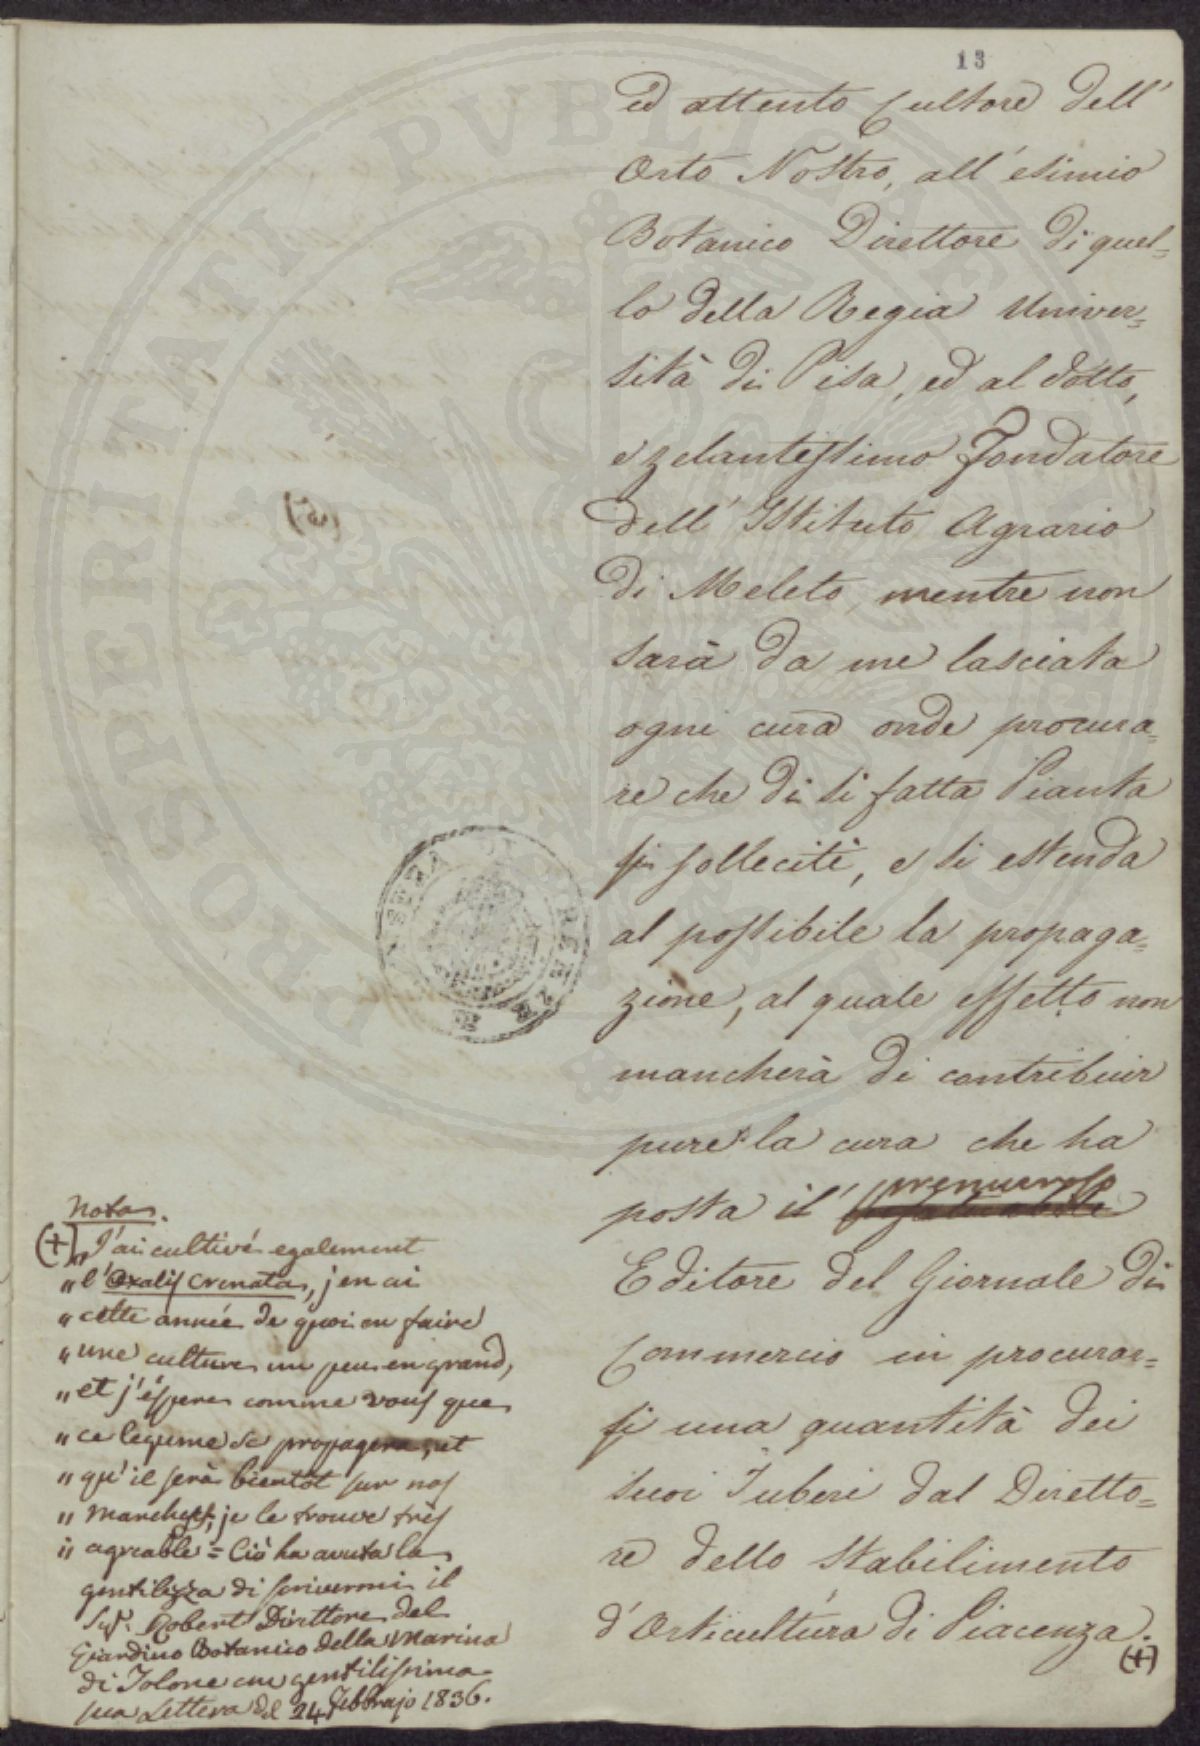 13
ed attento Cultore dell'
Orto Nostro, all'esimio
Botanico Direttore di quel=
lo della Regia Univer=
sità di Pisa, ed al dotto,
e zelantissimo Fondatore
dell' Istituto Agrario
di Meleto, mentre non
sarà da me lasciata
ogni cura onde procura=
re che di si fatta Pianta
si solleciti, e si estenda
al possibile la propaga=
zione, al quale effetto non
mancherà di contribuir
pure la cura che ha
posta il premuroso
Editore del Giornale di
Commercio in procurar=
si una quantità dei
suoi Tuberi dal Diretto=
re dello Stabilimento
d'Orticultura di Piacenza.
(+)
Nota.
(+) "J'ai cultivé egalement
"l'Oxalis Crenata, j'en ai
"cette année de quoi en faire
"une culture un peu en grand,
"et j'éspere comme vous que
"ce legume se propagera, et
"qu'il serà bientôt sur nos
"Marchés, je le trouve très
"agreable = Ciò ha avuta la
gentilezza di scrivermi il
Sigr. Robert Direttore del
Giardino Botanico della Marina
di Tolone con gentilissima
sua Lettera del 24 Febbrajo 1836.
PROSPERITATI PVBLICAE